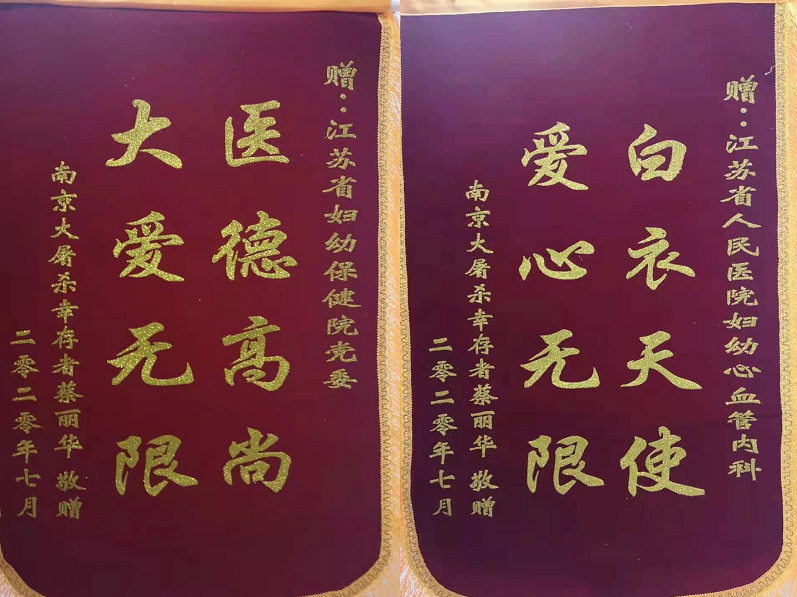 赠：江苏省妇幼保健院党委
医德高尚
大爱无限
南京大屠杀幸存者蔡丽华 敬赠
二零二零年七月
赠：江苏省人民医院妇幼心血管内科
白衣天使
爱心无限
南京大屠杀幸存者蔡丽华 敬赠
二零二零年七月